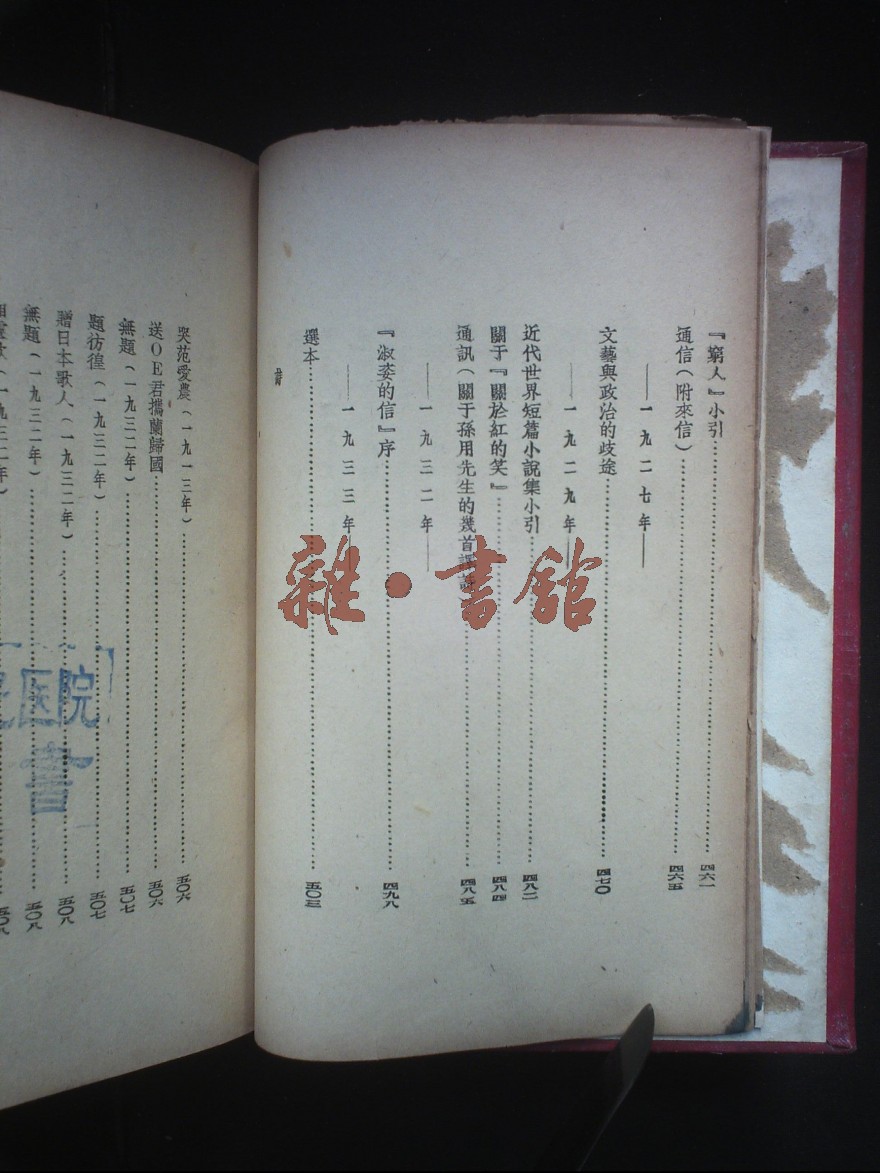 『窮人』小引……四六一
通信(附來信)……四六五
——一九二七年——
文藝與政治的歧途……四七〇
——一九二九年——
近代世界短篇小說集小引……四八二
關于『關於紅的笑』……四八四
通訊(關于孫用先生的幾首譯詩……四八五
——一九三二年——
『淑姿的信』序……四九八
——一九三三年
選本……五〇三
詩
哭范愛農(一九一三年)……五〇六
送OE君攜蘭歸國……五〇六
無題(一九三二年)……五〇七
題彷徨(一九三二年)……五〇七
贈日本歌人(一九三二年)……五〇八
無題(一九三二年)……五〇八
五〇八
雜·書館
医院
書